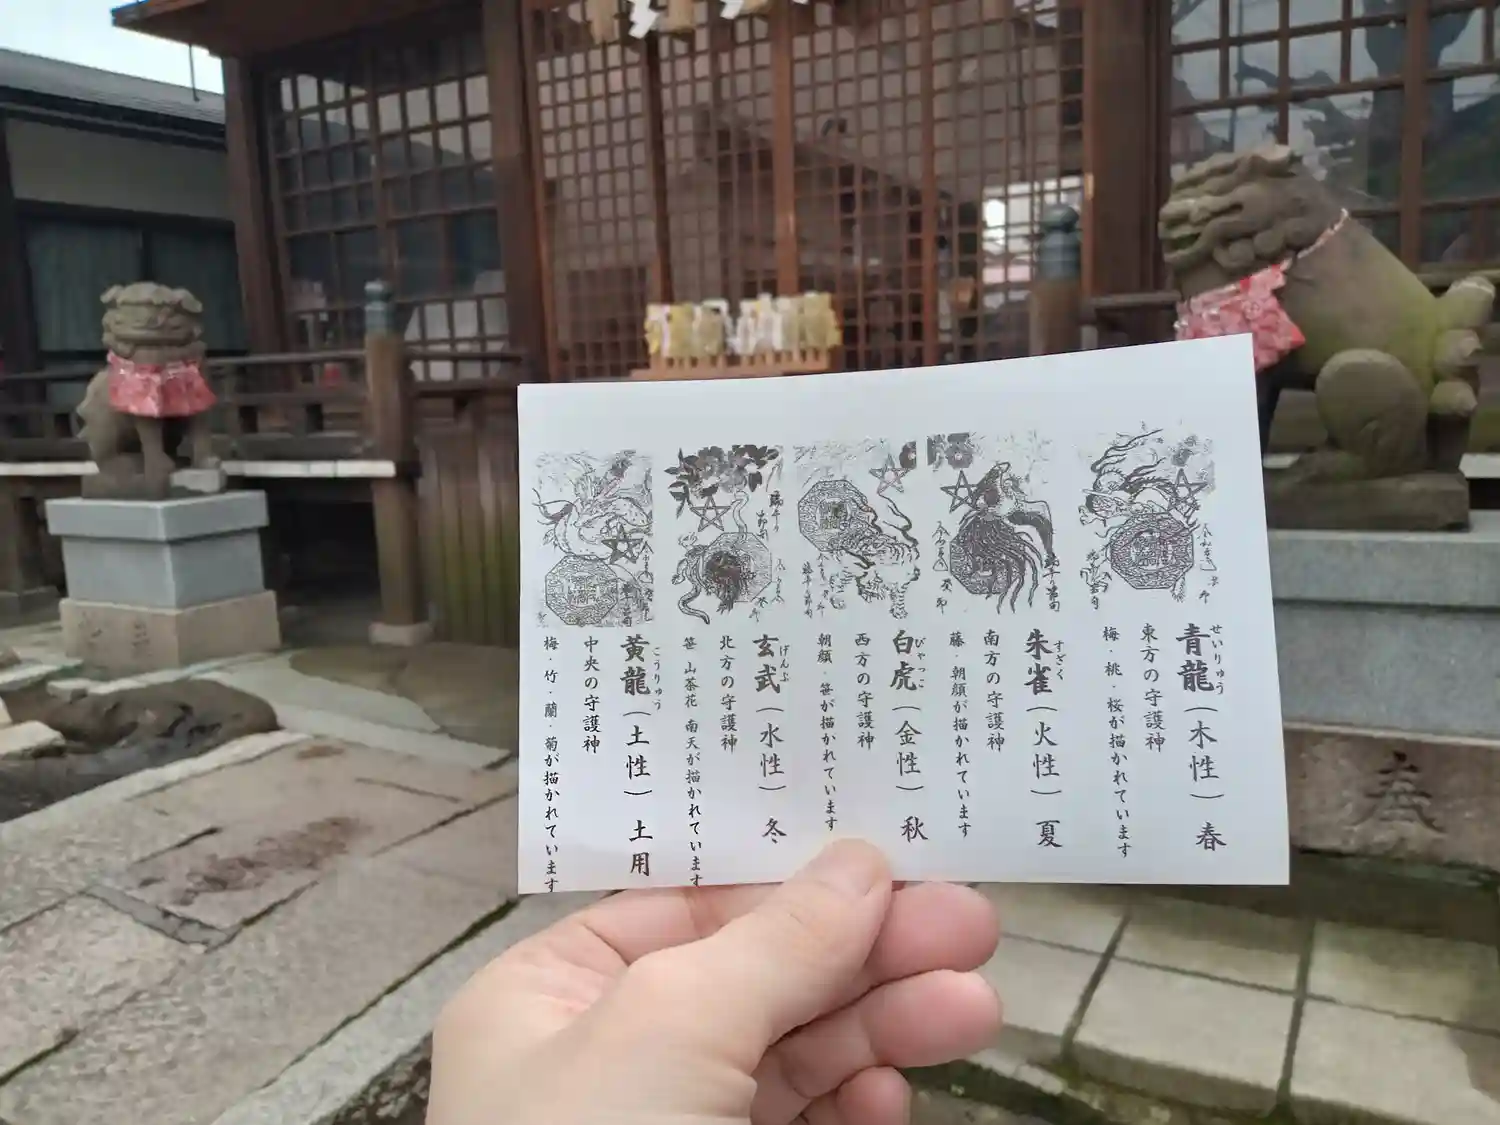 青龍（木性）春
せいりゅう
東方の守護神
梅・桃・桜が描かれています
朱雀（火性）夏
すざく
南方の守護神
藤・朝顔が描かれています
白虎（金性）秋
びゃっこ
西方の守護神
朝顔・笹が描かれています
玄武（水性）冬
げんぶ
北方の守護神
笹 山茶花 南天が描かれています
黄龍（土性）土用
こうりゅう
中央の守護神
梅・竹・蘭・菊が描かれています